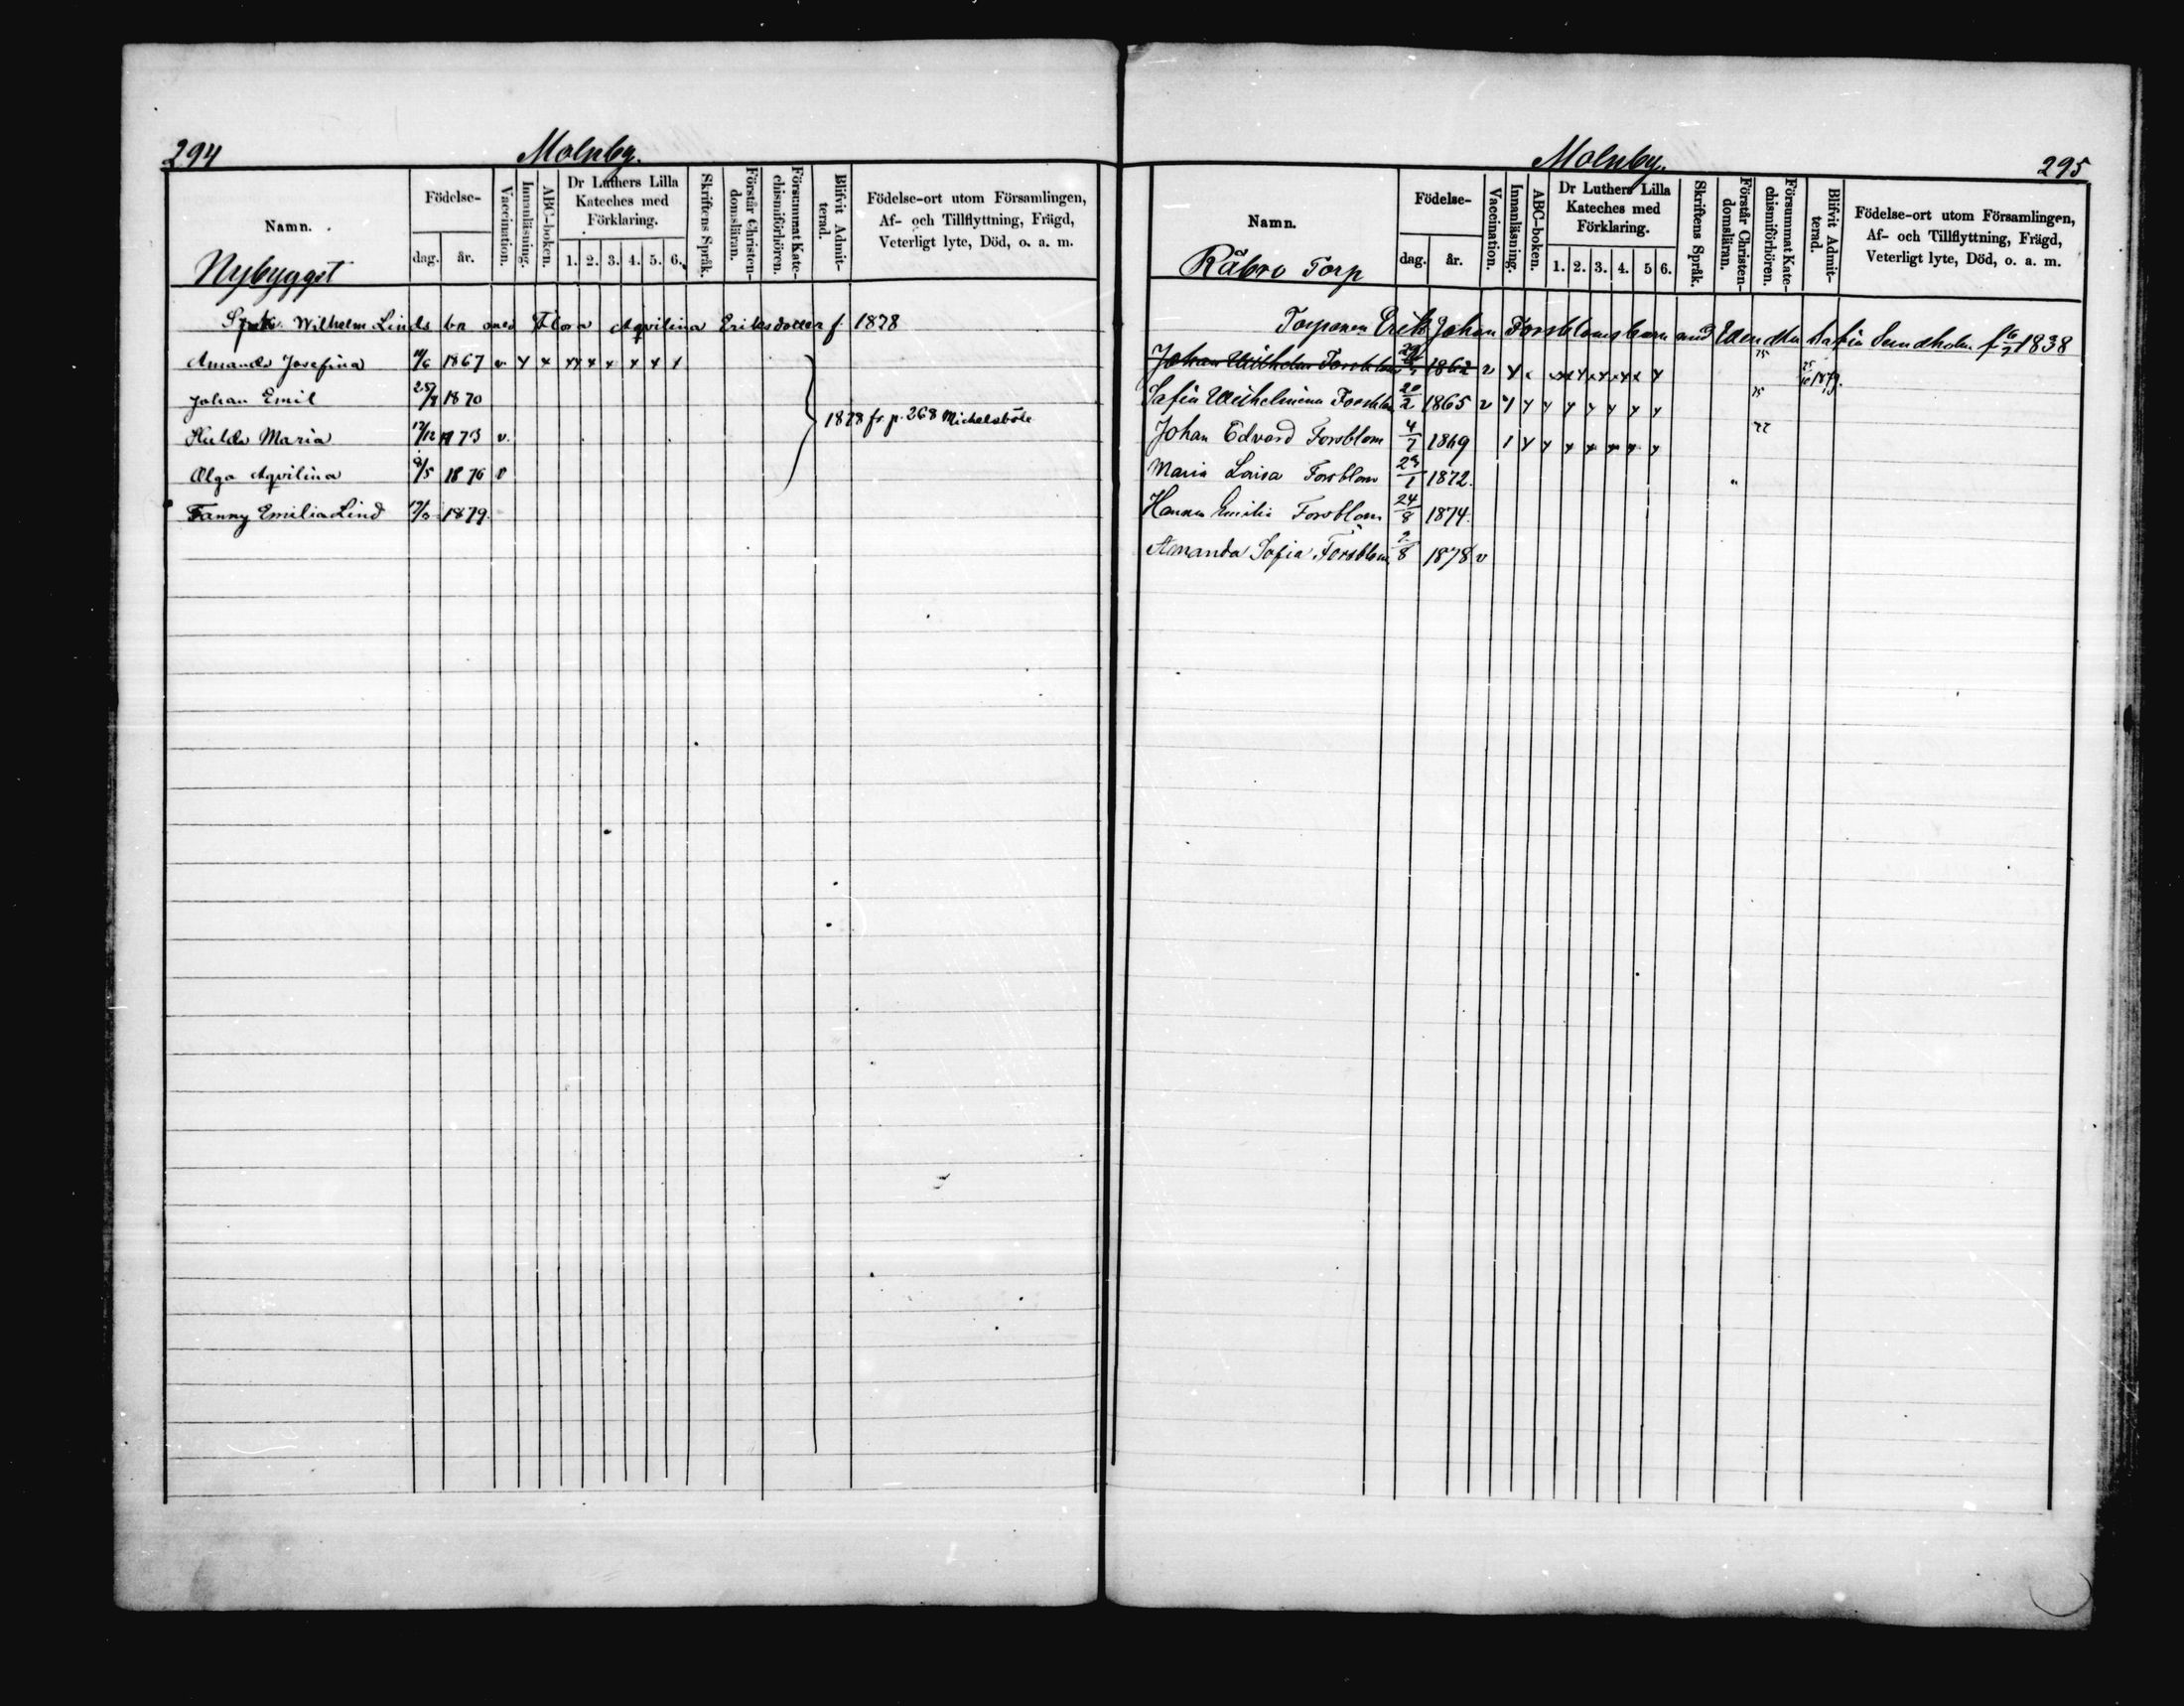 294 Molnby.
Namn. Födelse- dag. år. Vaccination. Innanläsning. ABC-boken. Dr Luthers Lilla Kateches med Förklaring. 1. 2. 3. 4. 5. 6. Skriftens Språk. Förstår Christendomsläran. Försummat Katechismiförhören. Blifvit Admitterad. Födelse-ort utom Församlingen, Af- och Tillflyttning, Frägd, Veterligt lyte, Död, o. a. m.
Nybygget
Wilhelm Linds bn med Flora Aqvilina Eriksdotter f. 1878
Amanda Josefina 1867 v
Johan Emil 1870
Hulda Maria 17/12 1873 v.
Olga Aqvilina 9/5 1876 v
1878 fr p. 268 Michelsböle
Fanny Emilia Lind 1879.
Molnby. 295
Namn. Födelse- dag. år. Vaccination. Innanläsning. ABC-boken. Dr Luthers Lilla Kateches med Förklaring. 1. 2. 3. 4. 5 6. Skriftens Språk. Förstår Christendomsläran. Försummat Katechismiförhören. Blifvit Admitterad. Födelse-ort utom Församlingen, Af- och Tillflyttning, Frägd, Veterligt lyte, Död, o. a. m.
Råbro Torp
Torparen Erik Johan Forsbloms barn med Sofia Sundholm f. 1838
Johan Wilhelm Forsblom 1862 v 75 1879.
Sofia Wilhelmina Forsblom 20/2 1865 v 75
Johan Edvard Forsblom 4/7 1869 77
Maria Lovisa Forsblom 29/1 1872.
Hanna Emilia Forsblom 24/8 1874.
Amanda Sofia Forsblom 2/8 1878 v